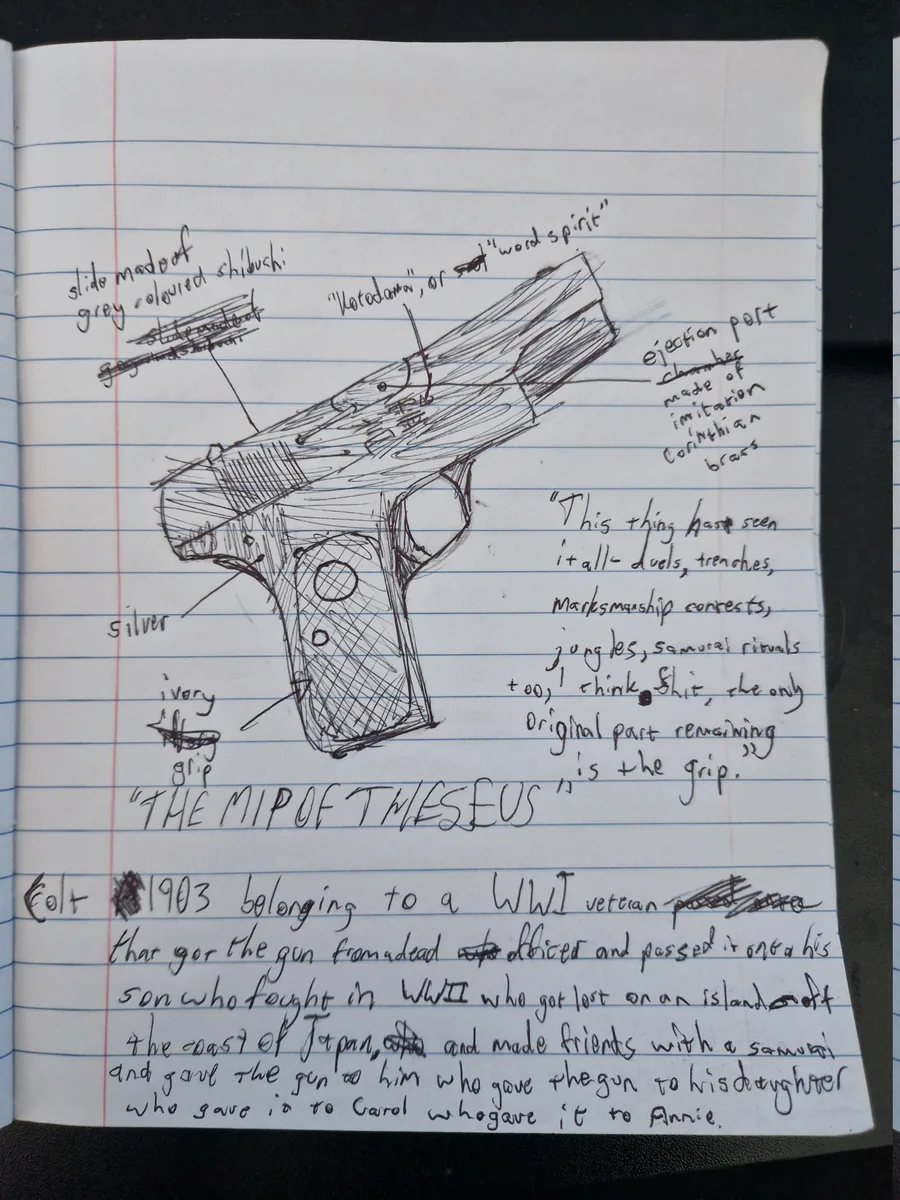 slide made of
grey coloured shibushi
"Kotodama", or "word spirit"
ejection port
chamber
made of
imitation
Corinthian
brass
silver
ivory
grip
"This thing has seen
it all- duels, trenches,
marksmanship contests,
jungles, samurai rituals
too, I think. Shit, the only
original part remaining
is the grip."
"THE MIP OF THESEUS"
Colt 1903 belonging to a WWI veteran
that got the gun from a dead officer and passed it onto his
son who fought in WWII who got lost on an island off
the coast of Japan, and made friends with a samurai
and gave the gun to him who gave the gun to his daughter
who gave it to Carol who gave it to Annie.